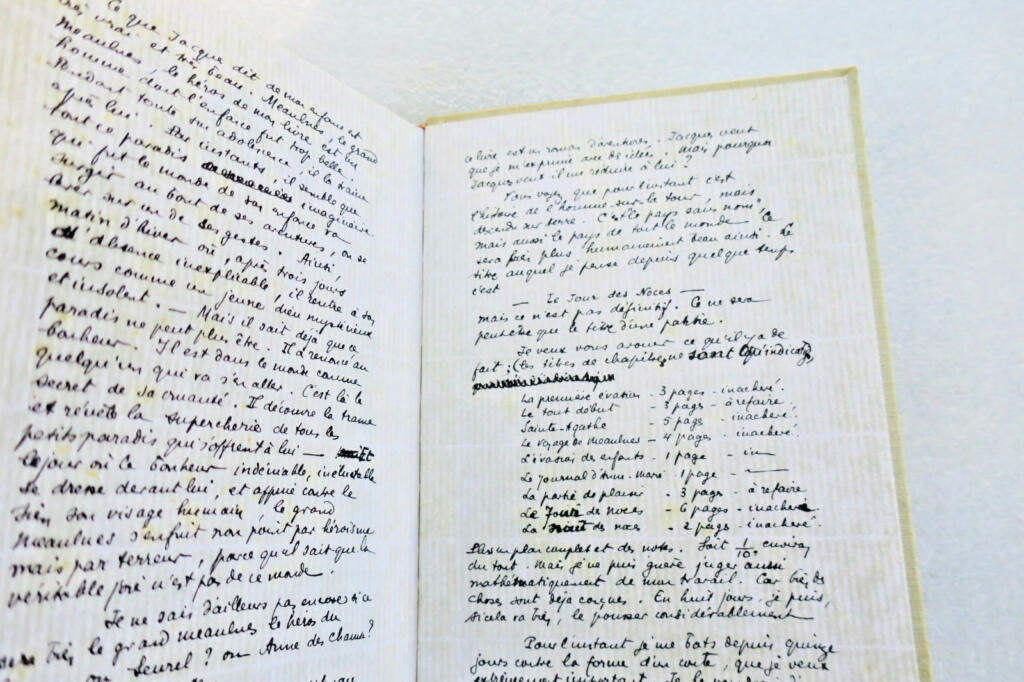 Ce que Jacques dit de mon enfance est
très vrai et très beau. Meaulnes, le grand
Meaulnes, le héros de mon livre est un
homme dont l'enfance fut trop belle.
Pendant toute son adolescence, il la traîne
après lui. Par instants, il semble que
tout ce paradis imaginaire
qui fut le monde de son enfance va
surgir au bout de ses aventures, ou se
lever sur un de ses gestes. Ainsi,
matin d'hiver où, après trois jours
d'absence inexplicable, il rentre à son
cours comme un jeune dieu mystérieux
et insolent. — Mais il sait déjà que ce
paradis ne peut plus être. Il a renoncé au
bonheur. Il est dans le monde comme
quelqu'un qui va s'en aller. C'est là le
secret de sa cruauté. Il découvre la trame
et révèle la supercherie de tous les
petits paradis qui s'offrent à lui — Et
le jour où le bonheur indéniable, inéluctable
se dresse devant lui, et appuie contre le
sien son visage humain, le grand
Meaulnes s'enfuit non point par héroïsme
mais par terreur, parce qu'il sait que la
véritable joie n'est pas de ce monde.
Je ne sais d'ailleurs pas encore si
très le grand Meaulnes le héros du
Seurel ? ou Anne des Champs ?
ou
ce livre est un roman d'aventures. Jacques veut
que je m'exprime avec des idées. Mais pourquoi
Jacques veut-il me réduire à lui ?
Vous voyez que pour l'instant c'est
l'histoire de l'homme-sur-la tour, mais
descendu sur terre. C'est "le pays sans nom"
mais aussi le pays de tout le monde. Ce
sera bien plus humainement beau ainsi. Le
titre auquel je pense depuis quelque temps
c'est
— Le Jour des Noces —
mais ce n'est pas définitif. Ce ne sera
peut-être que le titre d'une partie.
Je veux vous avouer ce qu'il y a de
fait : (les titres de chapitre ne sont qu'indicatifs)
La première évasion - 3 pages - inachevé.
Le tout début - 3 pages - à refaire.
Sainte-Agathe - 5 pages - inachevé.
Le voyage de Meaulnes - 4 pages - inachevé.
L'évasion des enfants - 1 page - in—
Le Journal d'Anne-Marie - 1 page - ——
La partie de plaisir - 3 pages - à refaire
Le Jour de noces - 6 pages - inachevé.
La nuit de noces - 2 pages - inachevé.
Plus un plan complet et des notes. Soit 1/10e environ
du tout. Mais je ne puis guère juger aussi
mathématiquement de mon travail. Car très des
choses sont déjà conçues. En huit jours, je puis,
si cela va très, le pousser considérablement
Pour l'instant je me bats depuis quinze
jours contre la forme d'un conte, que je veux
extrêmement important. Je le